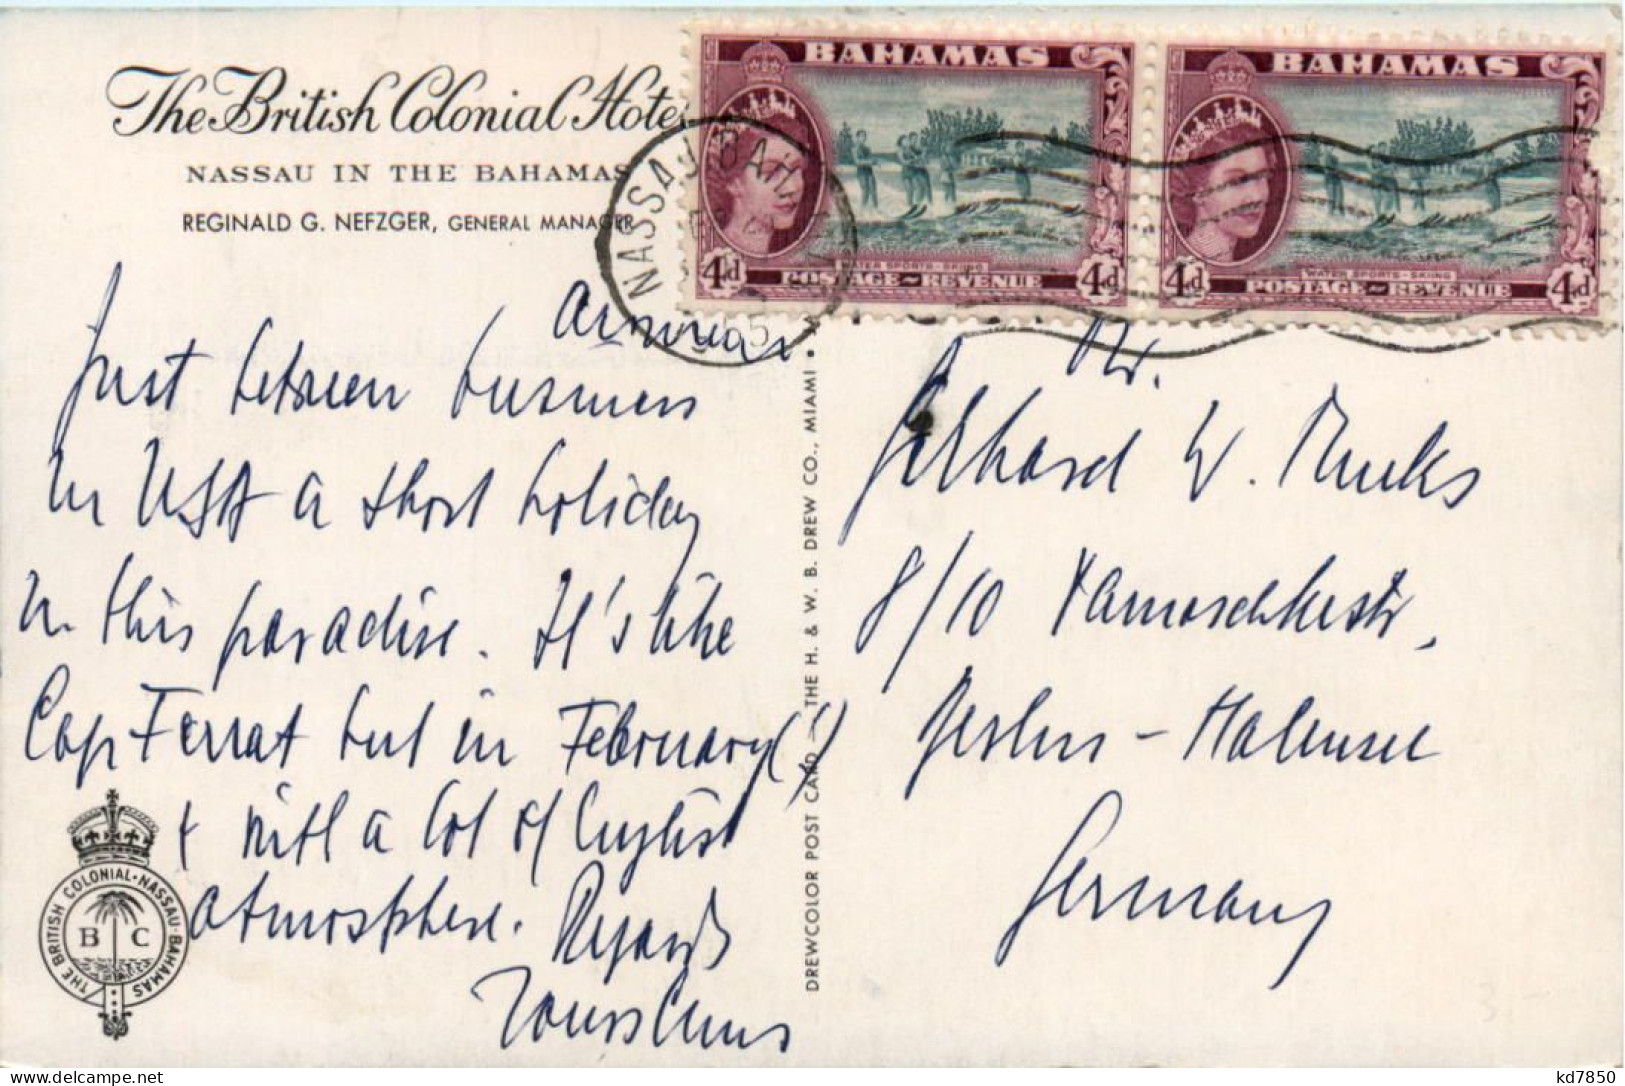 The British Colonial Hotel
NASSAU IN THE BAHAMAS
REGINALD G. NEFZGER, GENERAL MANAGER
BAHAMAS
4d 4d
WATER SPORTS - SKIING
POSTAGE ~ REVENUE
BAHAMAS
4d 4d
WATER SPORTS - SKIING
POSTAGE ~ REVENUE
NASSAU BAHAMAS
Just between business
in USA a short holiday
in this paradise. It's like
Cap Ferrat but in February(!)
+ with a lot of English
atmosphere. Regards
Yours
THE BRITISH COLONIAL · NASSAU · BAHAMAS
B C
DREWCOLOR POST CARD — THE H. & W. B. DREW CO., MIAMI •
Dr.
Gerhard W.
8/10
Berlin - Halensee
Germany
kd7850